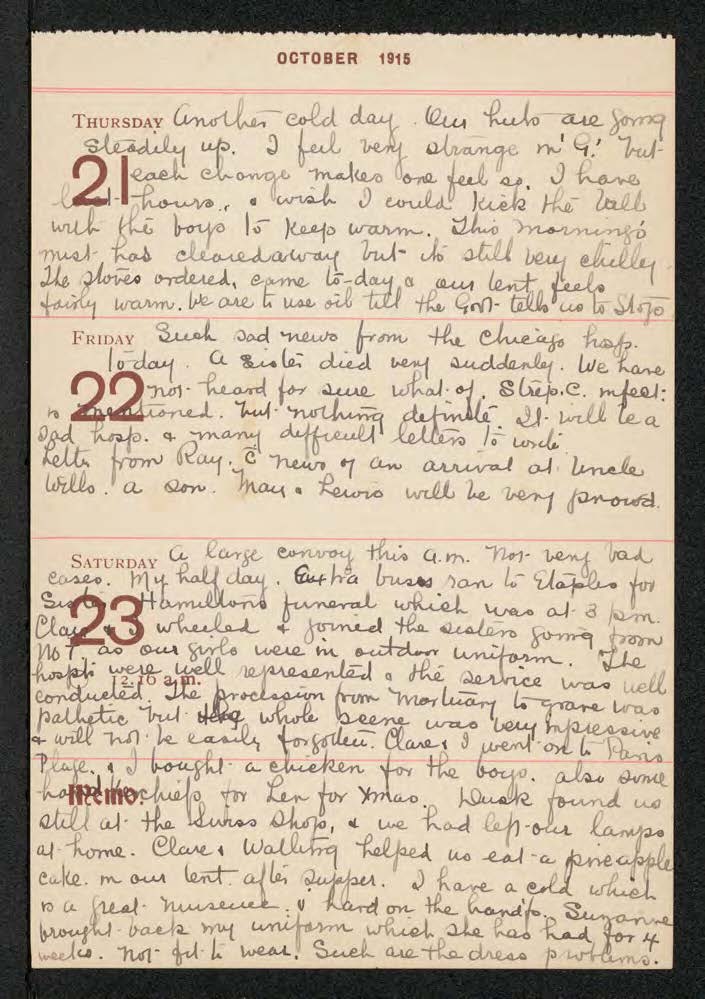 OCTOBER 1915
THURSDAY Another cold day. Our huts are going
steadily up. I feel very strange in 'G.' but
21 each change makes one feel so. I have
hours, & wish I could kick the ball
with the boys to keep warm. This morning's
mist has cleared away but its still very chilley.
The stoves ordered, came to-day & our tent feels
fairly warm. We are to use oil till the Govt. tells us to stop
FRIDAY Such sad news from the Chicago hosp.
to day. A Sister died very suddenly. We have
22 not heard for sure what of. Strep. C. infect:
is mentioned. but nothing definite. It will be a
sad hosp. & many difficult letters to write.
Letter from Ray. c̄ news of an arrival at Uncle
Wills. a son. May & Lewis will be very proud.
SATURDAY A large convoy this a.m. Not very bad
cases. My half day. Extra buses ran to Etaples for
Sister Hamilton's funeral which was at 3 p.m.
23 Clare & I wheeled & joined the sisters going from
No 7 as our girls were in outdoor uniform. The
hospts were well represented & the service was well
12.16 a.m.
conducted. The procession from Mortuary to grave was
pathetic but the whole scene was very impressive
& will not be easily forgotten. Clare & I went on to Paris
Plage. & I bought a chicken for the boys. also some
Memo.
handkerchiefs for Len for Xmas. Dusk found us
still at the Swiss Shop, & we had left our lamps
at home. Clare & Walling helped us eat a pineapple
cake. in our tent after supper. I have a cold which
is a great nuisence & hard on the handfs. Suzanne
brought back my uniform which she has had for 4
weeks. Not fit to wear. Such are the dress problems.